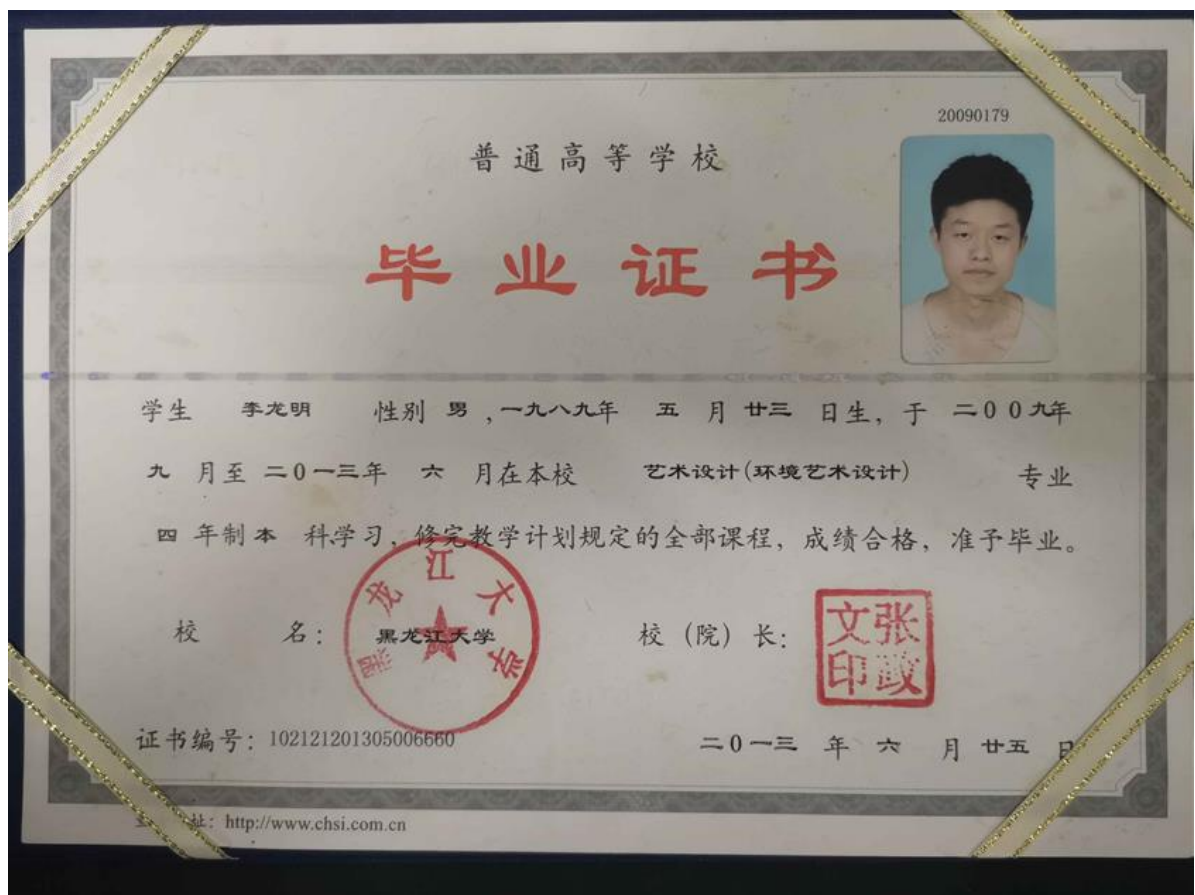 20090179
普通高等学校
毕业证书
学生 李龙明 性别 男,一九八九年 五 月 廿三 日生,于 二00九年
九 月至 二0一三年 六 月在本校 艺术设计(环境艺术设计) 专业
四 年制 本 科学习,修完教学计划规定的全部课程,成绩合格,准予毕业。
校 名: 黑龙江大学 校(院)长:
黑龙江大学
张政文印
证书编号:102121201305006660 二0一三 年 六 月 廿五 日
址:http://www.chsi.com.cn